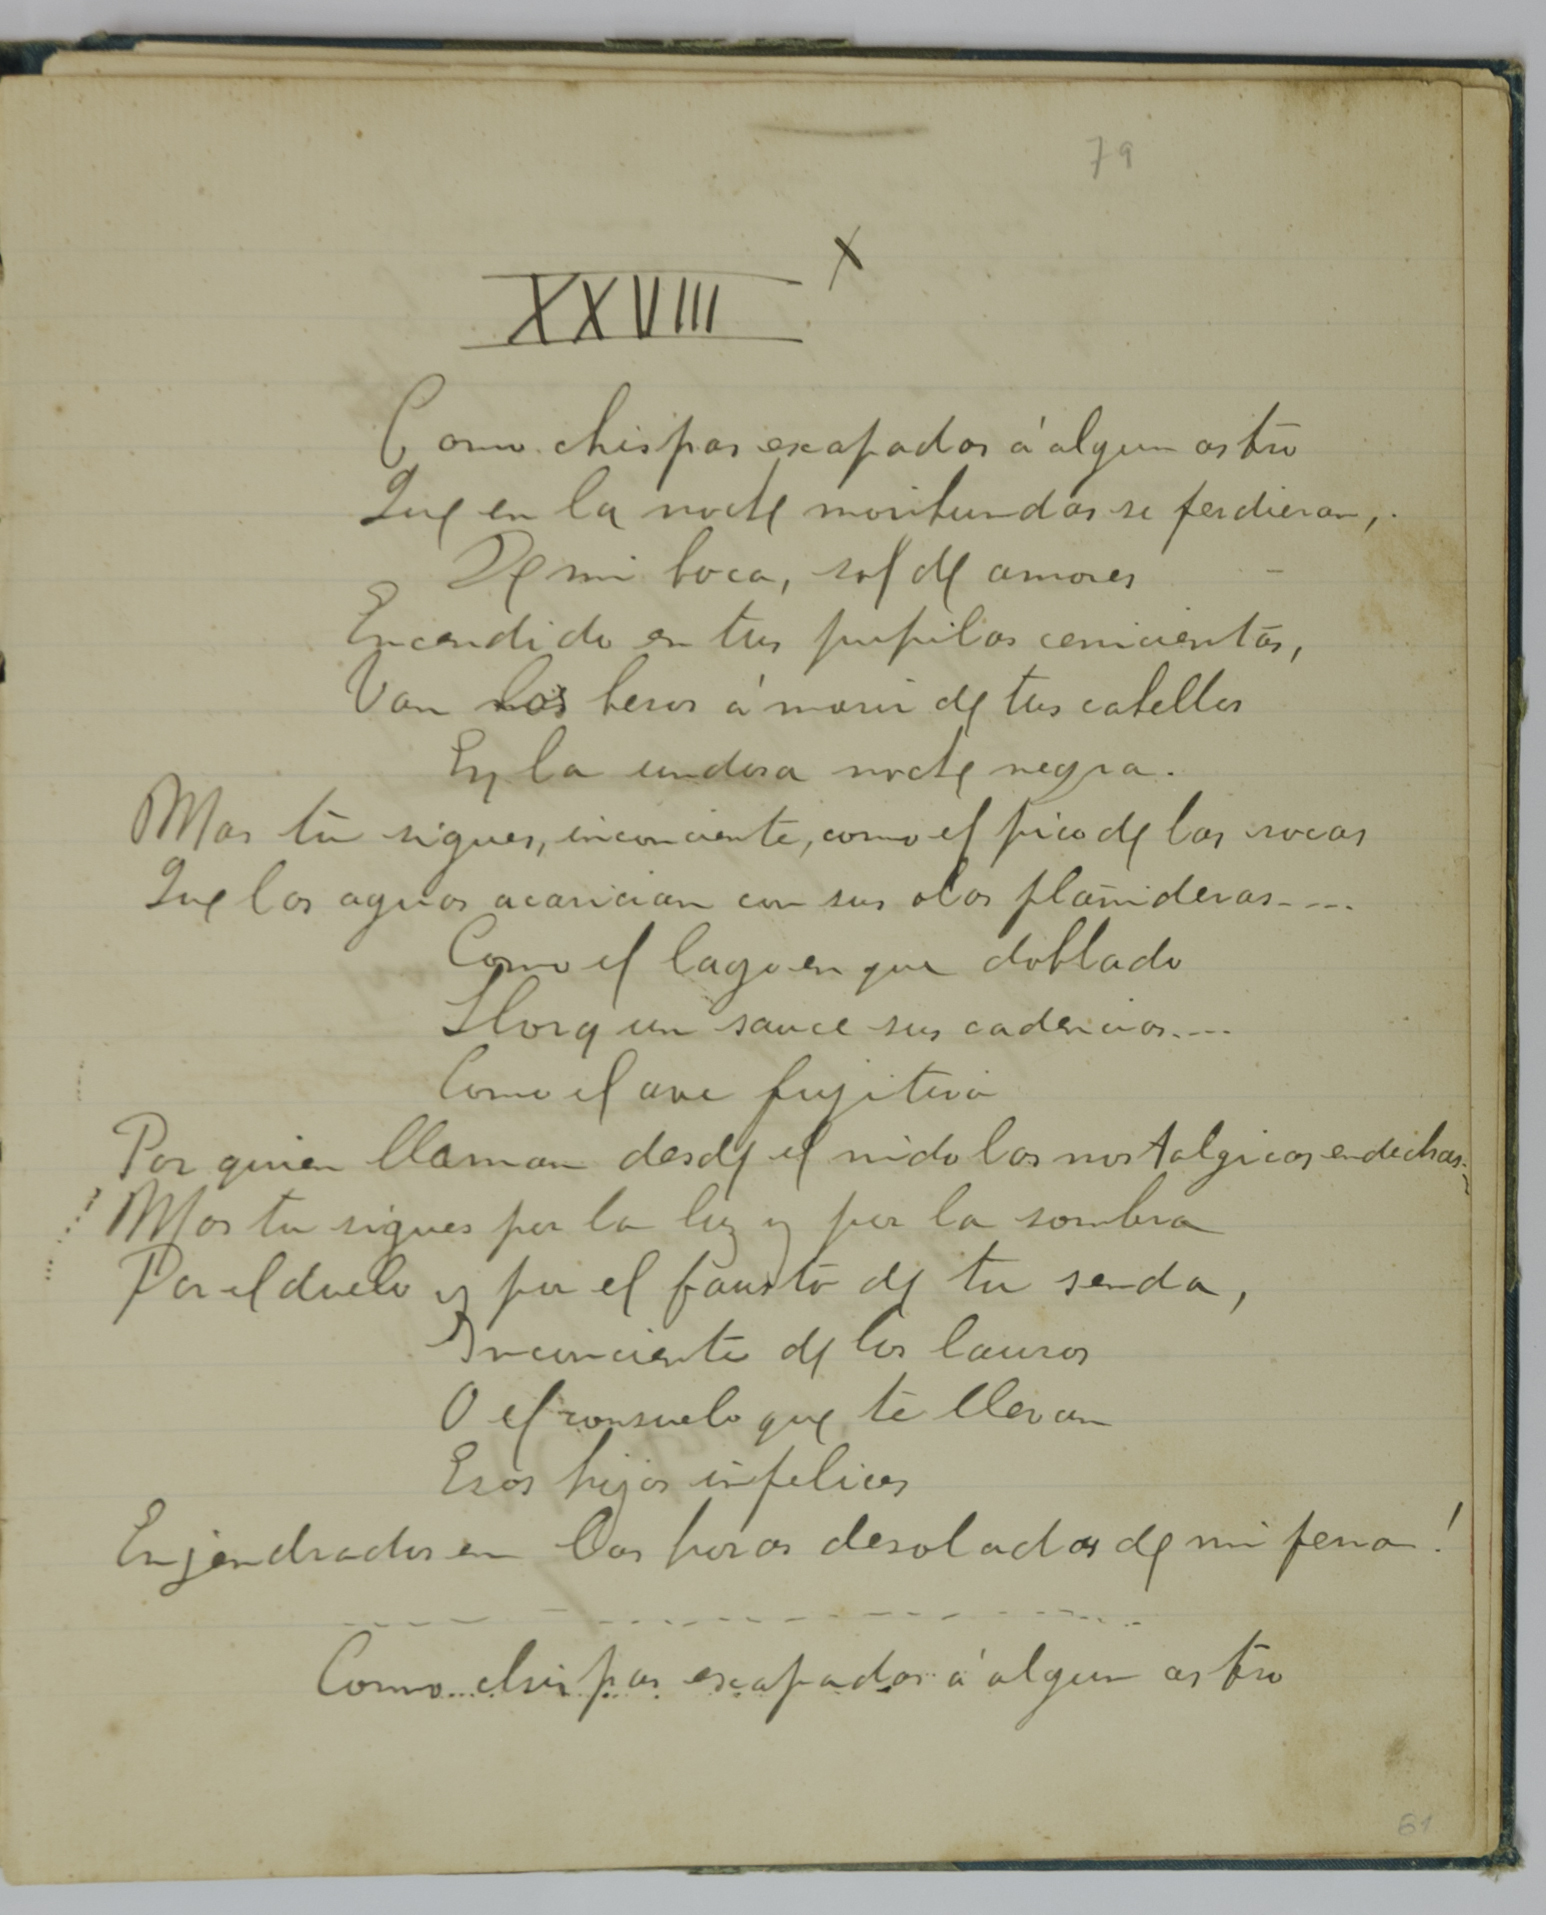 79
XXVIII x
Como chispas escapadas á algun astro
Que en la noche moribundas se perdieran,
De mi boca, sol de amores
Encendido en tus pupilas cenicientas,
Van los besos á morir de tus cabellos
En la undosa noche negra.
Mas tú sigues, inconciente, como el pico de las rocas
Que las aguas acarician con sus olas plañideras....
Como el lago en que doblado
Llora un sauce sus cadencias....
Como el ave fujitiva
Por quien llaman desde el nido las nostalgicas endechas...
Mas tu sigues por la luz y por la sombra
Por el duelo y por el fausto de tu senda,
Inconciente de los lauros
O el consuelo que te llevan
Esos hijos infelices
Enjendrados en las horas desoladas de mi pena!
Como chispas escapadas á algun astro
61